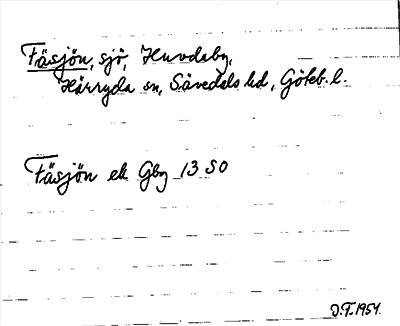 Fäsjön, sjö, Huvdaby,
Härryda sn, Sävedals hd, Göteb. l.
Fäsjön ek Gbg 13 SO
D.F. 1954.